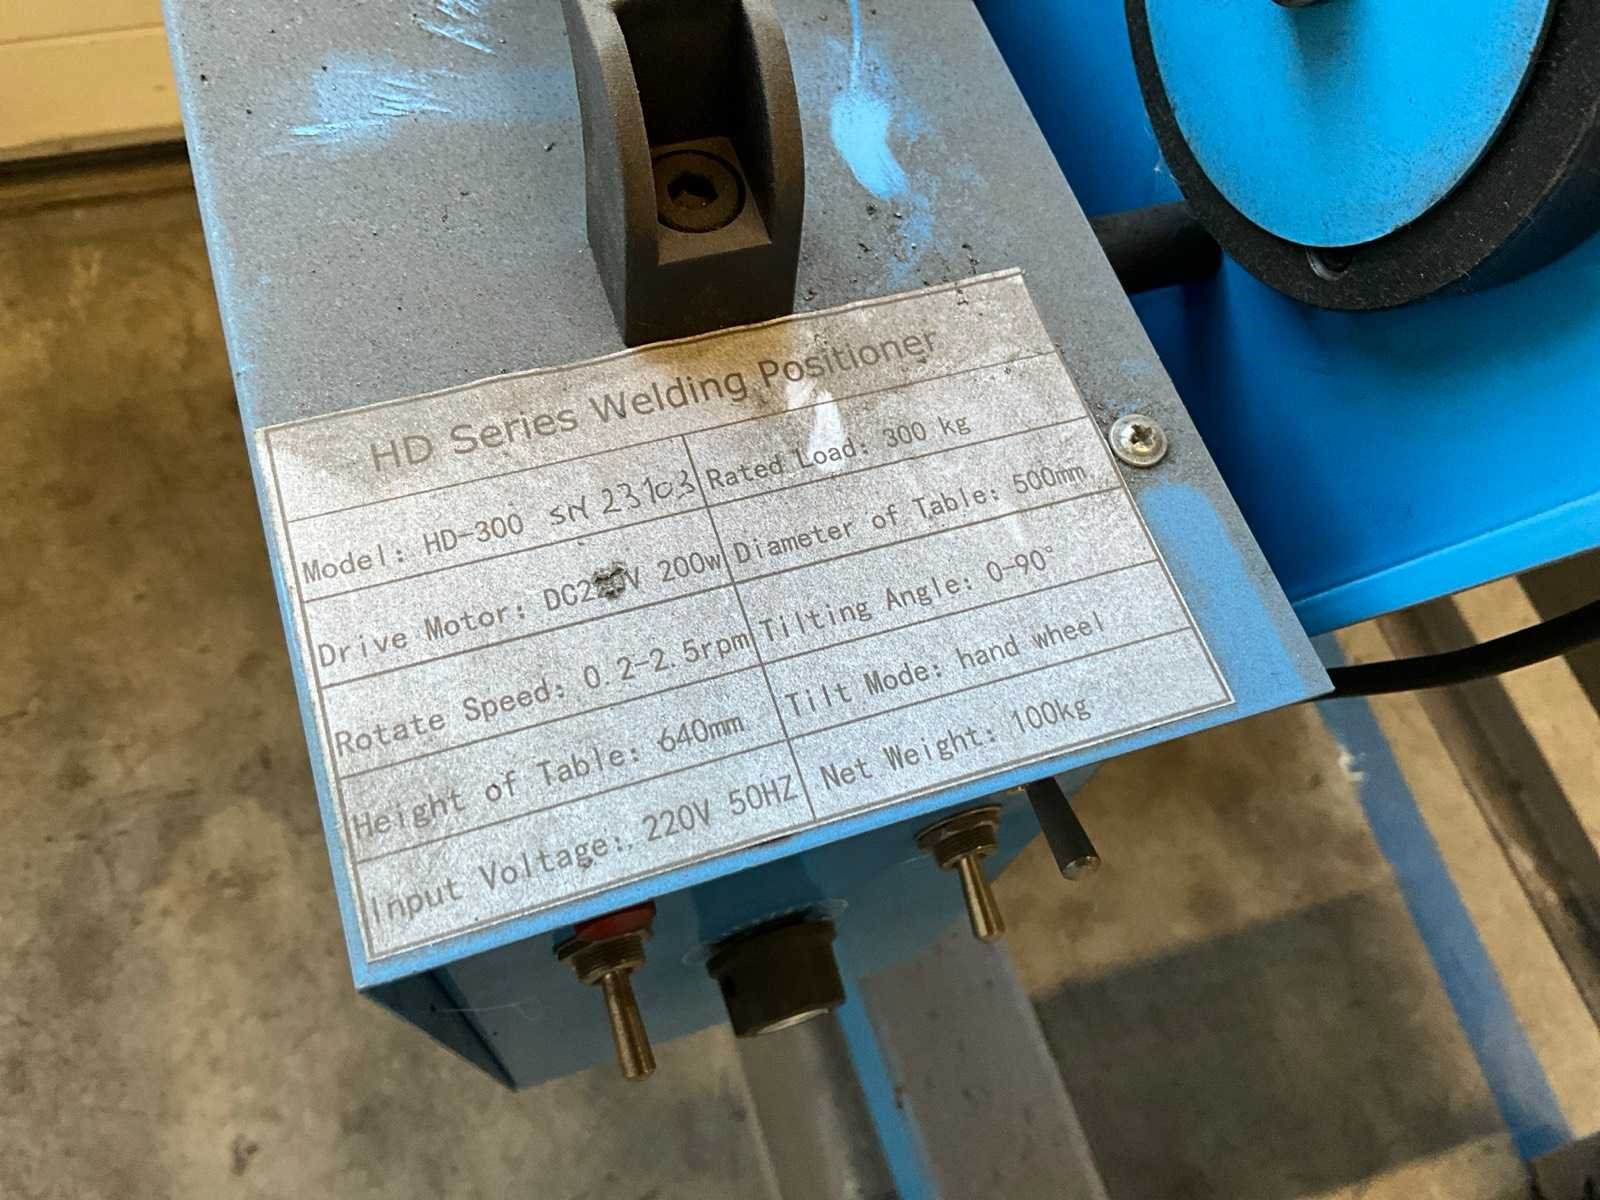 HD Series Welding Positioner
Model: HD-300 SN 23103
Rated Load: 300 kg
Drive Motor: 200w
Diameter of Table: 500mm
Rotate Speed: 0.2-2.5rpm
Tilting Angle: 0-90°
Height of Table: 640mm
Tilt Mode: hand wheel
Input Voltage: 220V 50HZ
Net Weight: 100kg